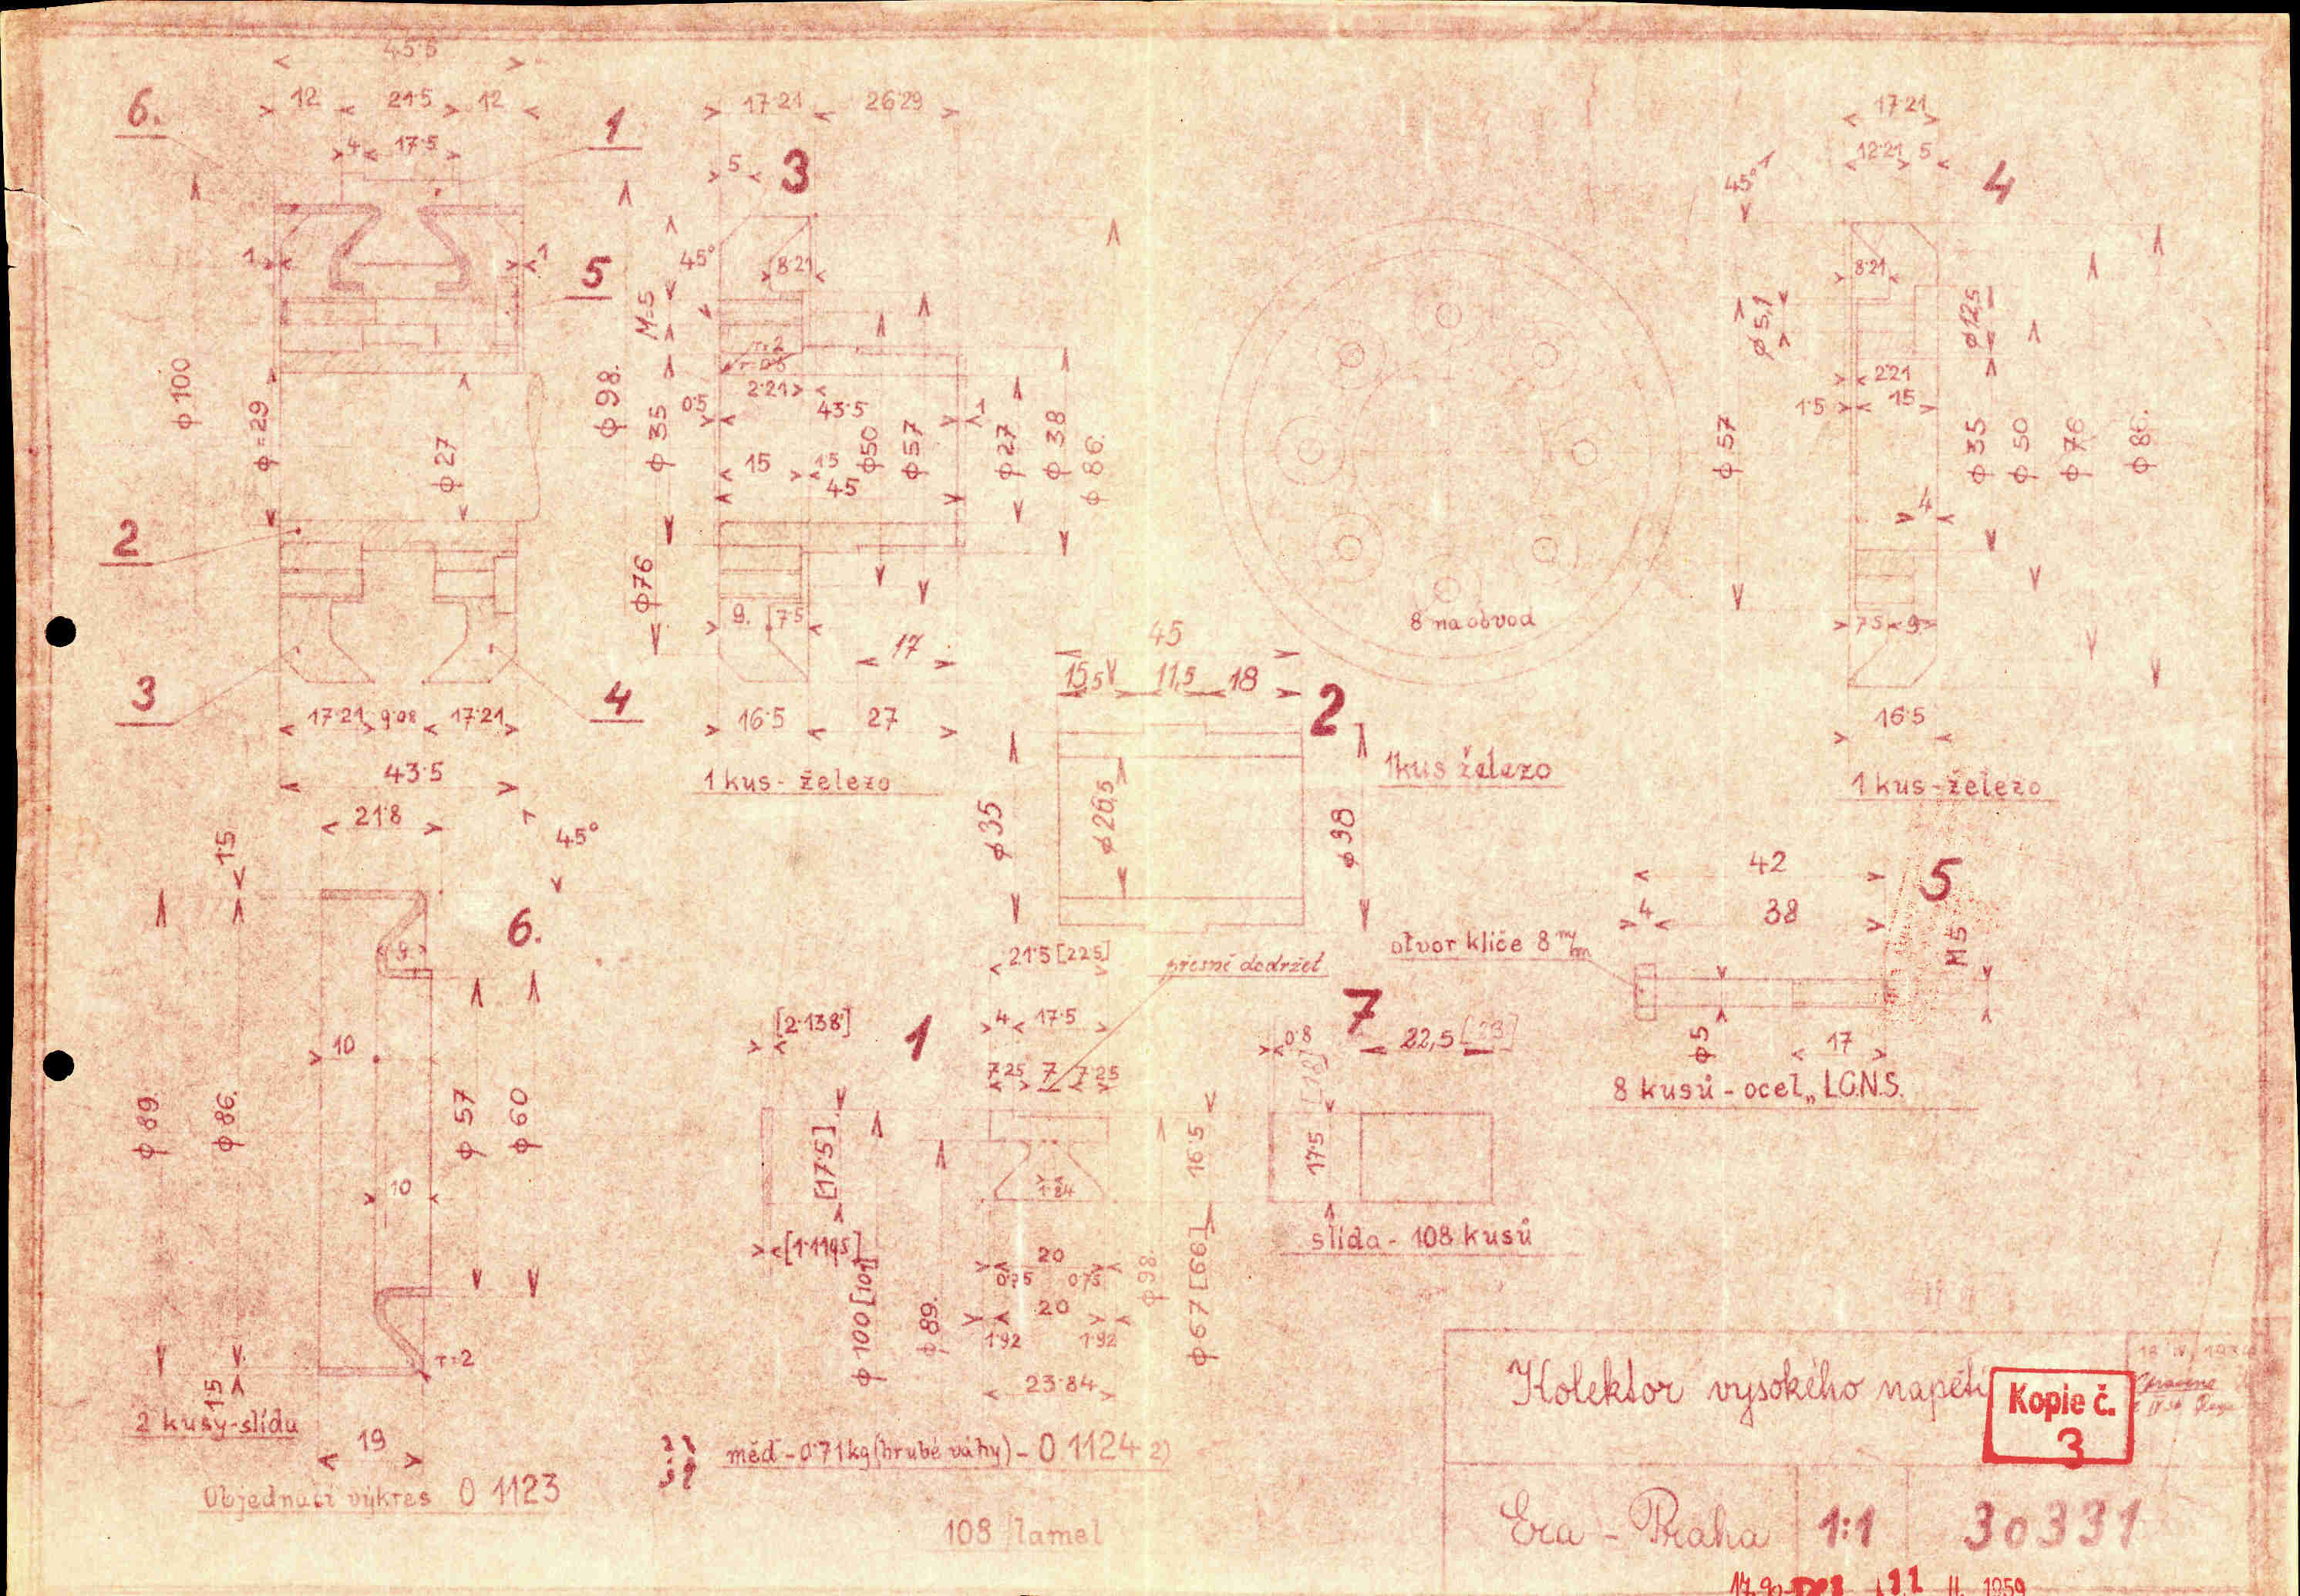 45·5
12 21·5 12
4 17·5
6.
1
1 1
5
φ 100
φ=29
φ 27
φ 98.
2
3
4
17·21 9·08 17·21
43·5
17·21 26·29
5
3
45°
8·21
M=5
r=2
r=0·5
2·21
0·5
43·5
1
15 15
45
φ 35
φ50
φ57
φ27
φ 38
φ 86.
φ76
9. 7·5
17
16·5 27
1 kus - železo
8 na obvod
17·21
12·21 5
45°
4
8·21
φ 5,1
φ 12,5
2·21
1·5 15
φ 57
φ 35
φ 50
φ 76
φ 86.
4
7·5 9
16·5
1 kus - železo
45
15,5 11,5 18
2
φ35
φ26,5
φ38
1kus železo
21·8
1·5
45°
6.
9
10
φ 89.
φ 86.
φ 57
φ 60
10
r=2
1·5
2 kusy-slídu
19
Objednací výkres O 1123
21·5 [22·5]
přesně dodržet
[2·138]
1
4 17·5
7·25 7 7·25
[17·5]
1·84
16·5
φ 100 [101]
φ 89.
φ 98
φ 67 [66]
20
0·75 0·75
20
1·92 1·92
23·84
měď - 0·71kg (hrubé váhy) - O 1124 2)
108 lamel
7
0·8
22,5 [23]
[18]
17·5
slída - 108 kusů
42
5
4 38
otvor klíče 8 m/m
M 5
φ5
17
8 kusů - ocel „ I.G.N.S.
Kolektor vysokého napětí
Kopie č.
3
Era - Praha 1:1 30331
II. 1959